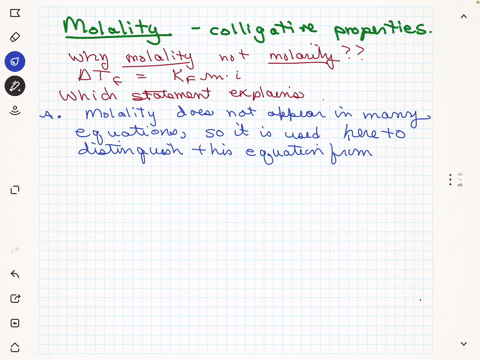 Molality - colligative properties.
why molality not molarity??
ΔTF = KF·m·i
Which statement explains
A. Molality does not appear in many
equations, so it is used here to
distinguish this equation from